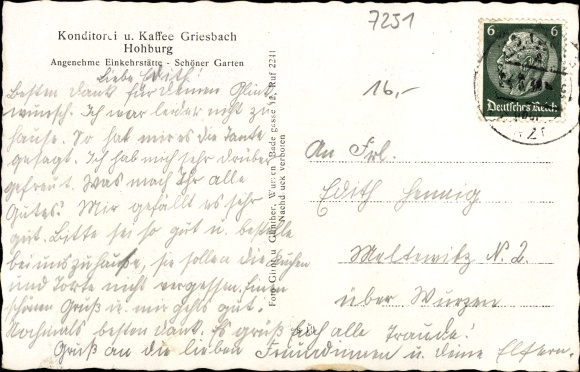 7231
Konditorei u. Kaffee Griesbach
Hohburg
Angenehme Einkehrstätte - Schöner Garten
16,-
6 6
Deutsches Reich
Liebe Edith!
Besten dank für deinen Glück-
wunsch. Ich war leider nicht zu
hause. So hat mir es die Tante
gesagt. Ich hab mich sehr drüber
gefreut. Was mach Ihr alle
Gutes? Mir gefällt es sehr
gut. Bitte sei so gut u. bestelle
bei uns zuhause, sie sollen die Kuchen
und Torte nicht vergessen. Einen
schönen Gruß u. mir gehts gut.
Nochmals besten dank. Es grüß euch alle Traude!
Gruß an die lieben Freundinnen u. deine Eltern.
Foto Günther, Wurzen, Badergasse 12, Ruf 2241
Nachdruck verboten
An Frl.
Edith Hennig
Meltewitz N. 2.
über Wurzen